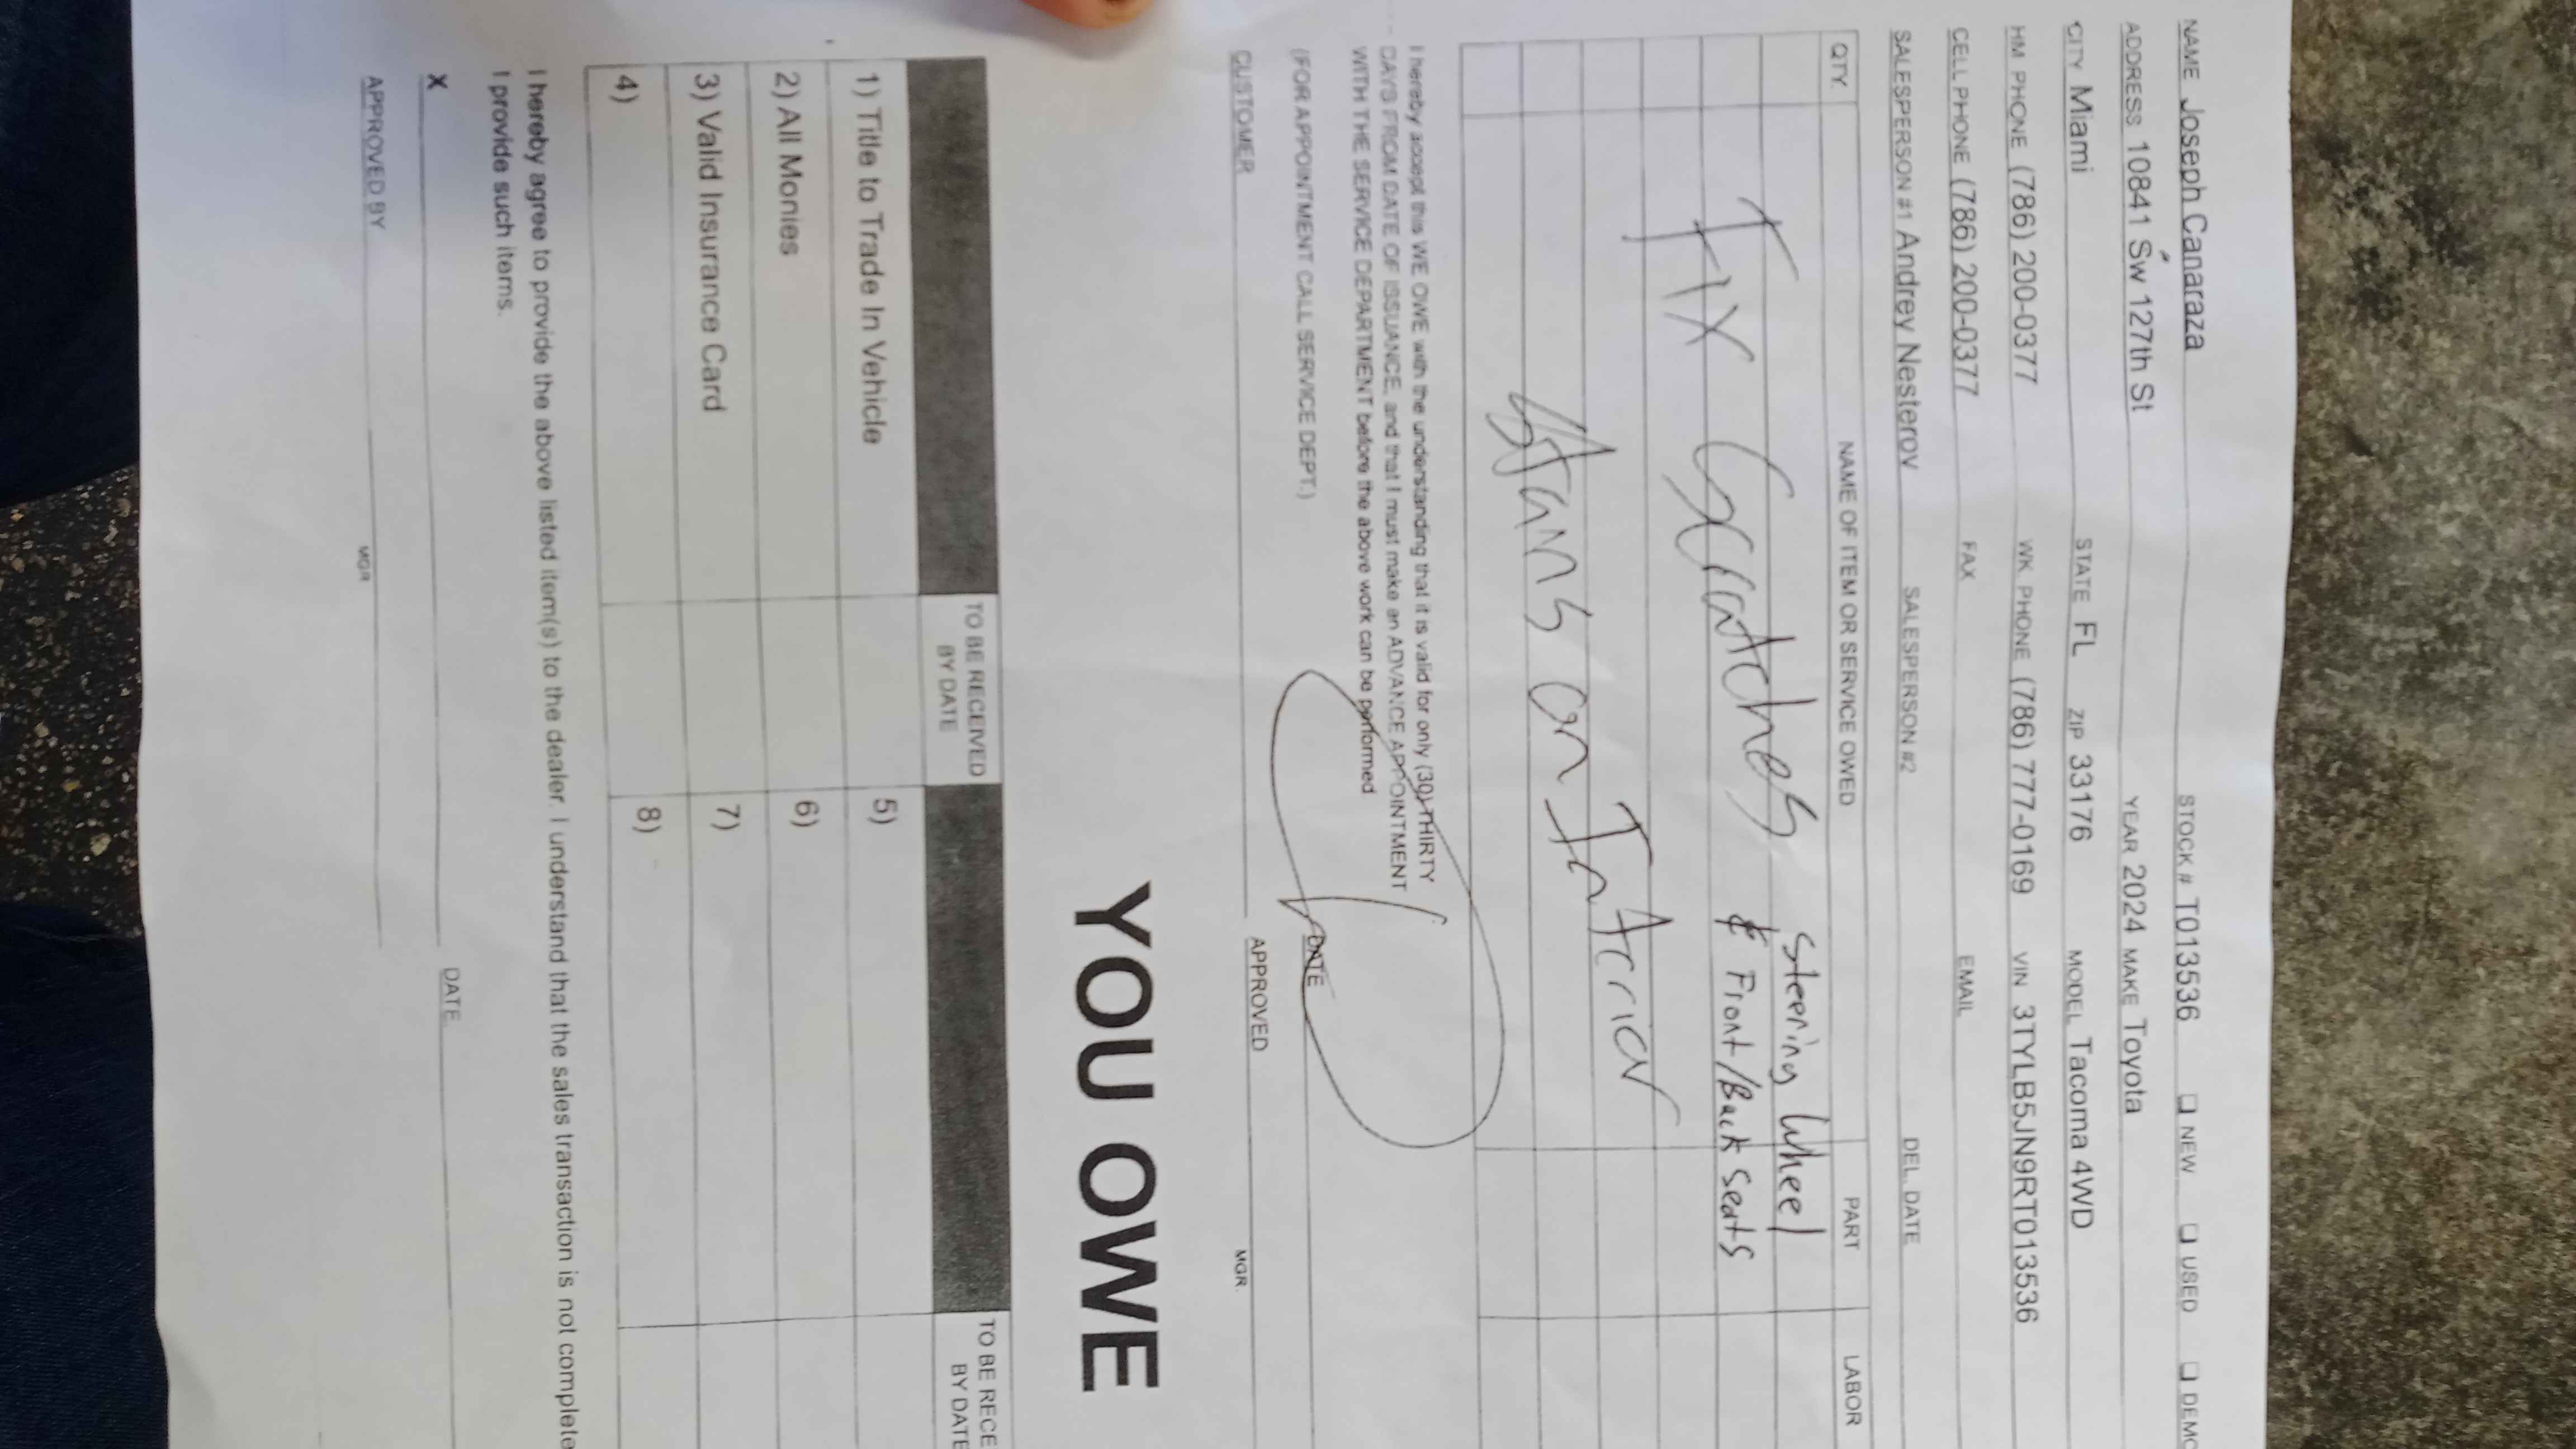 NAME Joseph Canaraza STOCK# T013536 ❑ NEW ❑ USED ❑ DEMO
ADDRESS 10841 Sw 127th St YEAR 2024 MAKE Toyota
CITY Miami STATE FL ZIP 33176 MODEL Tacoma 4WD
HM PHONE (786) 200-0377 WK PHONE (786) 777-0169 VIN 3TYLB5JN9RT013536
CELL PHONE (786) 200-0377 FAX EMAIL
SALESPERSON #1 Andrey Nesterov SALESPERSON #2 DEL. DATE
QTY. NAME OF ITEM OR SERVICE OWED PART LABOR
Steering Wheel
Fix Scratches & Front/Back Seats
Stains on Interior
I hereby accept this WE OWE with the understanding that it is valid for only (30) THIRTY
DAYS FROM DATE OF ISSUANCE, and that I must make an ADVANCE APPOINTMENT
WITH THE SERVICE DEPARTMENT before the above work can be performed
(FOR APPOINTMENT CALL SERVICE DEPT.) DATE
CUSTOMER APPROVED MGR.
YOU OWE
TO BE RECEIVED BY DATE TO BE RECE BY DATE
1) Title to Trade In Vehicle 5)
2) All Monies 6)
3) Valid Insurance Card 7)
4) 8)
I hereby agree to provide the above listed item(s) to the dealer. I understand that the sales transaction is not complete
I provide such items.
X DATE
APPROVED BY MGR